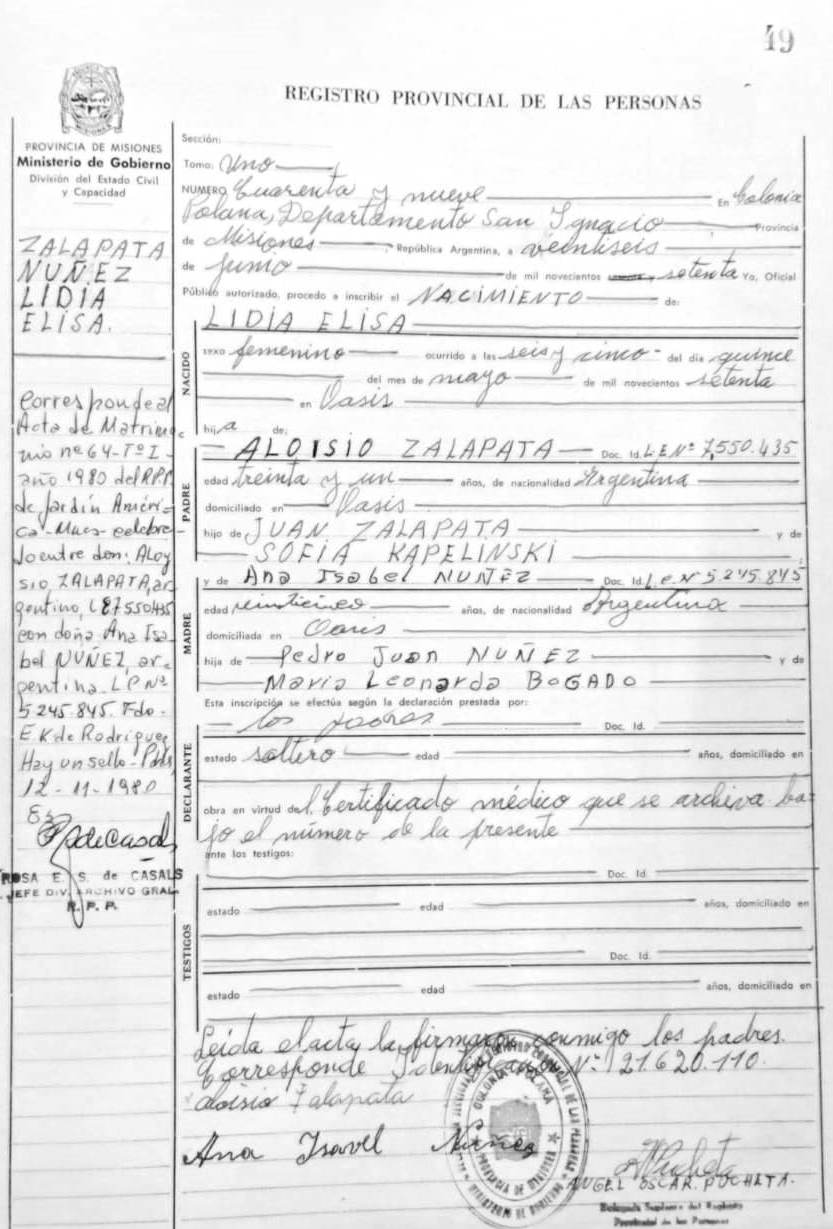 49
REGISTRO PROVINCIAL DE LAS PERSONAS
PROVINCIA DE MISIONES
Ministerio de Gobierno
División del Estado Civil
y Capacidad
ZALAPATA
NUÑEZ
LIDIA
ELISA.
Corresponde al
Acta de Matrimo
nio nº 64-Tº I-
año 1980 del RPP.
de Jardín Améri-
ca-Mnes-celebra
do entre don: Aloy
sio ZALAPATA, ar
gentino, LE 7550435
con doña Ana Isa
bel NUÑEZ, ar-
gentina LP Nº
5.245.845. Fdo.
E K de Rodriguez
Hay un sello - Pdas,
12-11-1980
ROSA E. S. de CASALS
JEFE DIV. ARCHIVO GRAL.
R. P. P.
Sección:
Tomo: Uno
NUMERO Cuarenta y nueve En Colonia
Polana, Departamento San Ignacio Provincia
de Misiones República Argentina, a veintiseis
de Junio de mil novecientos setenta Yo, Oficial
Público autorizado, procedo a inscribir el NACIMIENTO de:
NACIDO
LIDIA ELISA
sexo femenino ocurrido a las seis y cinco del día quince
del mes de mayo de mil novecientos setenta
en Oasis
hija de:
PADRE
ALOISIO ZALAPATA Doc. Id. L.E.Nº 7,550.435
edad treinta y un años, de nacionalidad Argentina
domiciliado en Oasis
hijo de JUAN ZALAPATA y de
SOFIA KAPELINSKI
MADRE
y de Ana Isabel NUÑEZ Doc. Id. L.C.Nº 5.245.845
edad veinticinco años, de nacionalidad Argentina
domiciliada en Oasis
hija de Pedro Juan NUÑEZ y de
Maria Leonarda BOGADO
Esta inscripción se efectúa según la declaración prestada por:
DECLARANTE
los padres Doc. Id.
estado soltero edad años, domiciliado en
obra en virtud del Certificado médico que se archiva ba-
jo el número de la presente
ante los testigos:
TESTIGOS
Doc. Id.
estado edad años, domiciliado en
Doc. Id.
estado edad años, domiciliado en
Leída el acta la firmaron conmigo los padres.
Corresponde Identificación Nº: 21.620.110.
aloisio Zalapata
Ana Isavel Nuñez
COLONIA POLANA
PROVINCIA DE MISIONES
MINISTERIO DE GOBIERNO
ANGEL OSCAR POCHETA.
Delegado Suplente del Registro
Provincial de las Personas